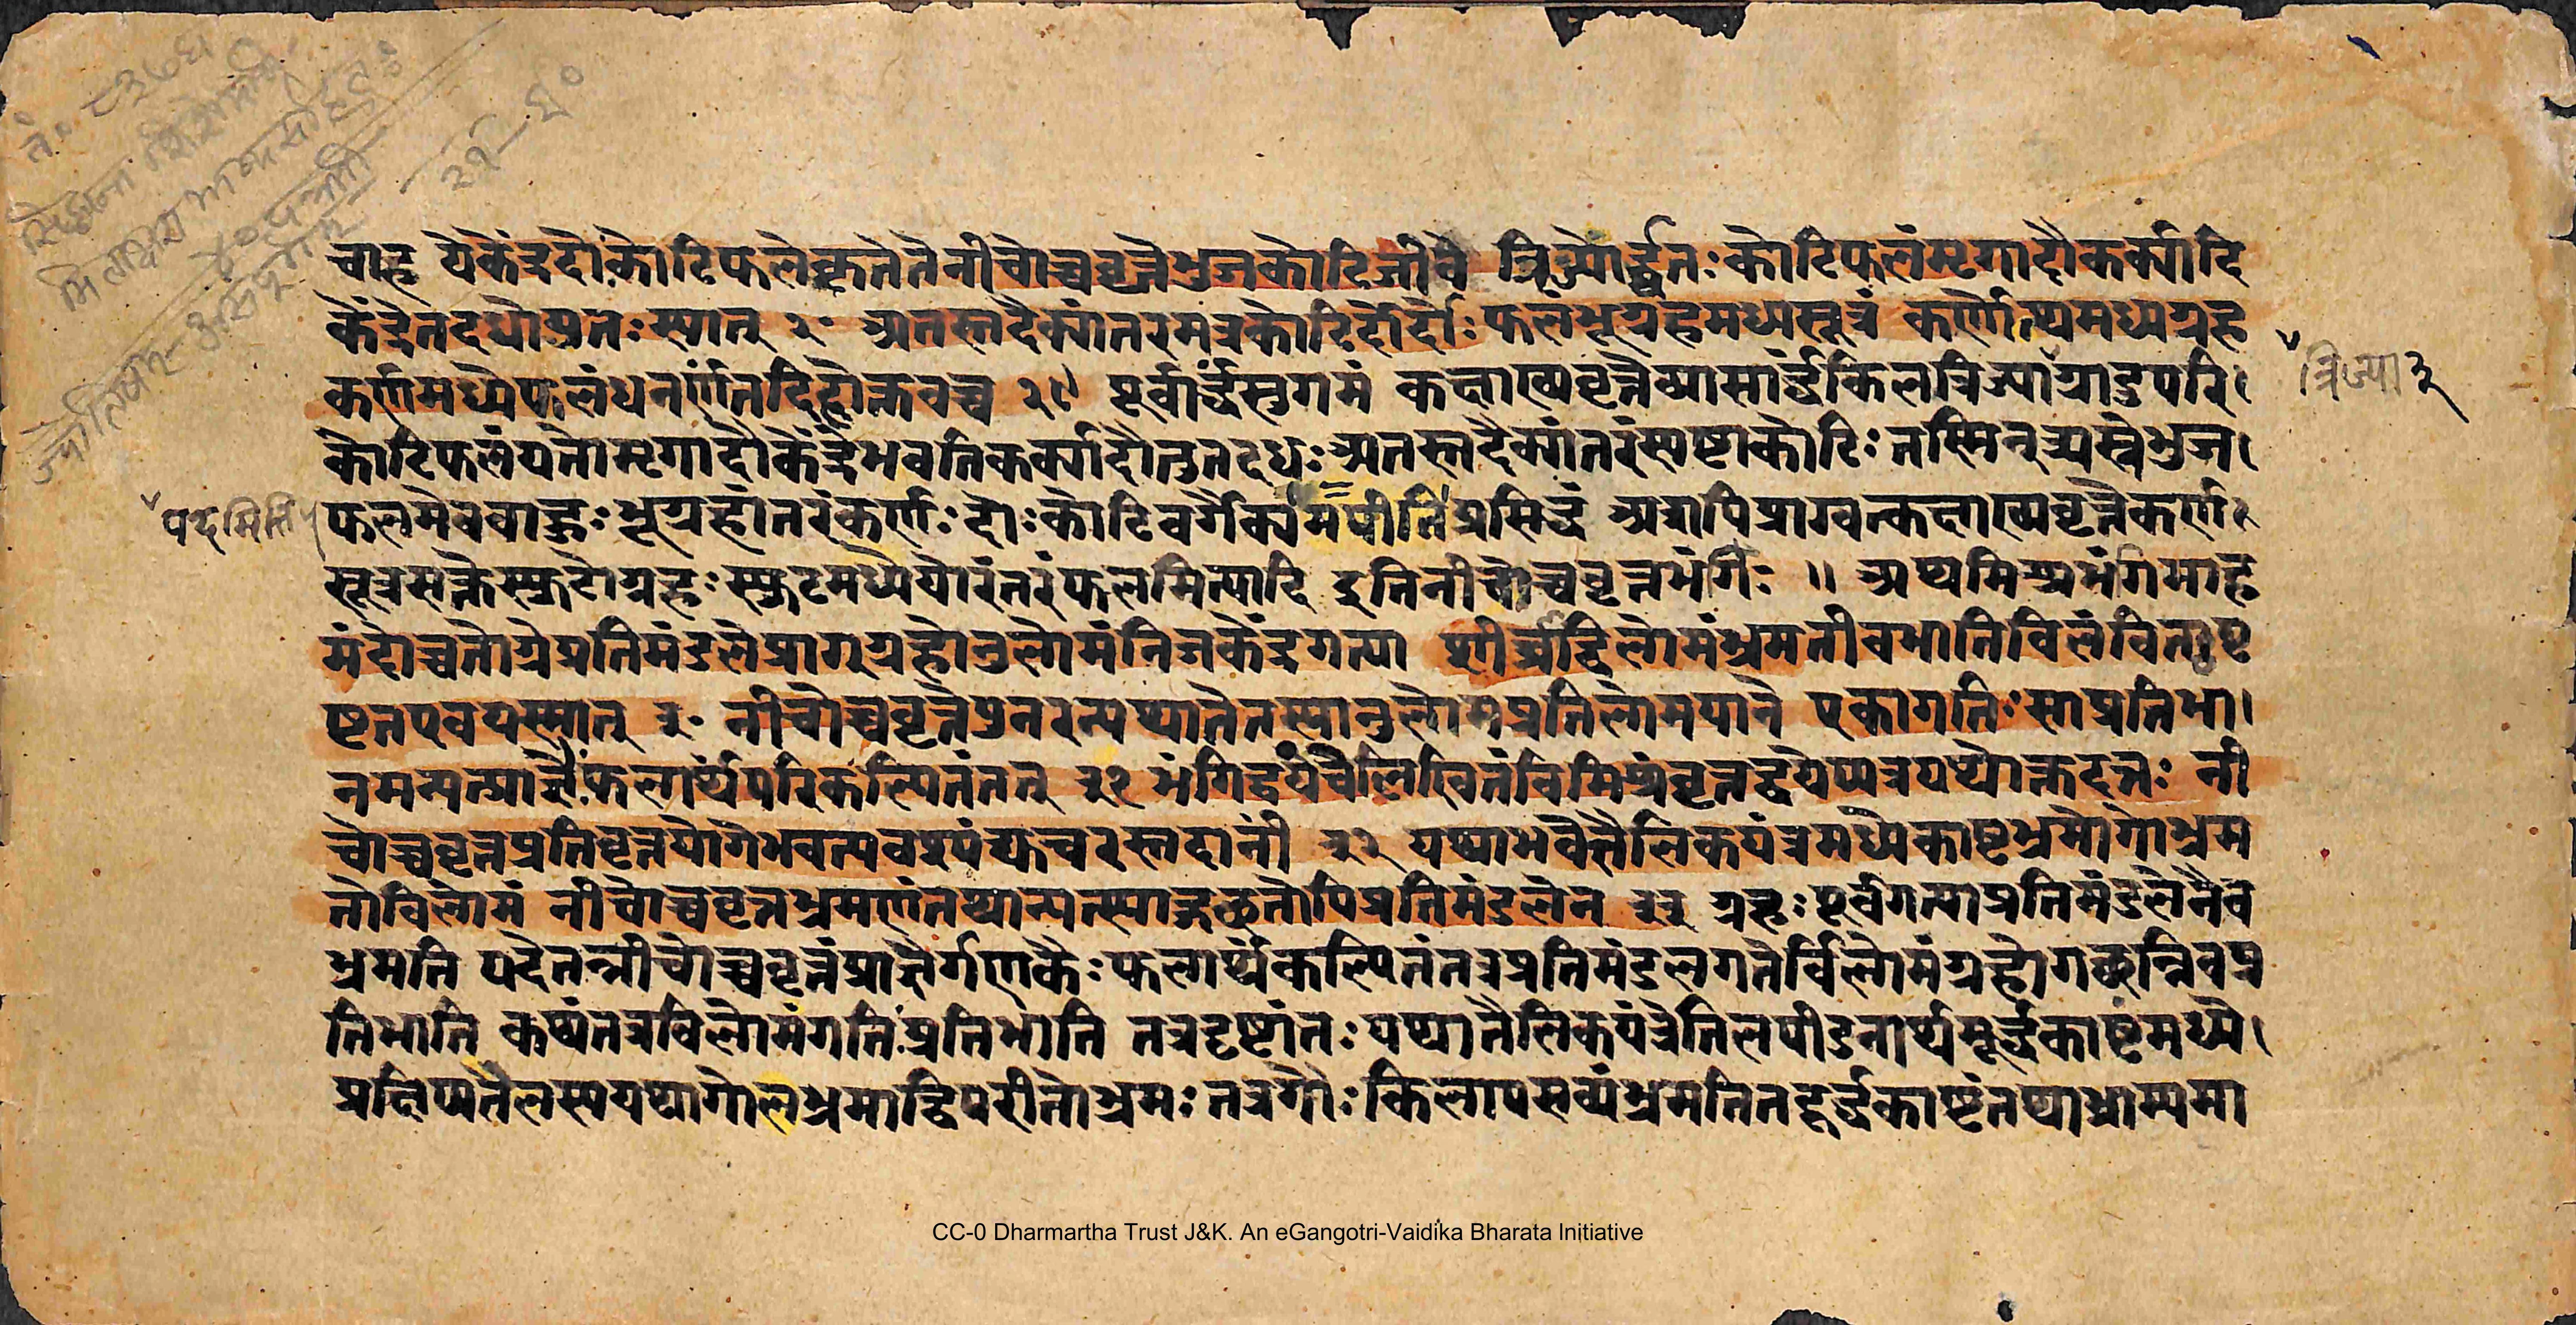 नं० ८३७घ
सिद्धान्त शिरोमणि
मिताक्षरा वासनासहितः
४० पत्राणि
ज्योतिषम्
२१-घ०
चाह येकेंद्रदोःकोटिफलेकृतेतेनीचोच्चवृत्तेभुजकोटिजीवे त्रिज्योर्द्ध्वतःकोटिफलंमृगादौकर्क्यादि
केंद्रेतदधोयतःस्यात् २॰ अतस्तदैक्यांतरमत्रकोटिर्दोर्दोःफलंभूग्रहमध्यसूत्रं कर्णोथमध्यग्रह
कर्णमध्येफलंधनर्णंतदिहोक्तवच्च २९ पूर्वार्द्धंसुगमं कक्षाख्यवृत्तेव्यासार्द्धंकिलत्रिज्याग्रादुपरि
त्रिज्या ३
कोटिफलंयतोमृगादौकेंद्रेभवतिकर्क्यादौतुतदधःअतस्तदैक्यांतरंस्पष्टाकोटिः तस्मिन्त्र्यस्रेभुज
पदमिति ५
फलमेवबाहुः भूग्रहांतरंकर्णः दोःकोटिवर्गैक्यमपीतिप्रसिद्धं अत्रापिप्राग्वत्कक्षाख्यवृत्तेकर्ण
सूत्रसक्तेस्फुटोग्रहः स्फुटमध्ययोरंतरंफलमित्यादि इतिनीचोच्चवृत्तभंगिः ॥ अथमिश्रभंगिमाह
मंदोच्चतोग्रेप्रतिमंडलेप्राग्ग्रहोनुलोमंनिजकेंद्रगत्या शीघ्राद्विलोमंभ्रमतीवभातिविलंबितःपृ
ष्टतएवयस्मात् ३॰ नीचोच्चवृत्तेपुनरन्यथातेतस्यानुलोमप्रतिलोमयाने एकागतिःसाप्रतिभा
नमन्यत्प्राज्ञैःफलार्थंपरिकल्पितंतत् ३१ भंगिद्वयंचेल्लिखितंविमिश्रंवृत्तद्वयेप्यत्रयथोक्तदत्तः नी
चोच्चवृत्तप्रतिवृत्तयोगेभवत्यवश्यंद्युचरस्तदानीं ३२ यथाभवेत्तैलिकयंत्रमध्येकाष्टभ्रमोगोभ्रम
तोविलोमं नीचोच्चवृत्तभ्रमणंतथान्यत्स्याद्गछतोपिप्रतिमंडलेन ३३ ग्रहः पूर्वगत्याप्रतिमंडलेनैव
भ्रमति यदेतन्नीचोच्चवृत्तंप्राज्ञैर्गणकैःफलार्थंकल्पितंतत्रप्रतिमंडलगतेर्विलोमंग्रहोगछन्निवप्र
तिभाति कथंतत्रविलोमंगतिःप्रतिभाति तत्रदृष्टांतः यथातैलिकयंत्रेतिलपीडनार्थमूर्द्ध्वकाष्टंमध्ये
प्रक्षिप्यतैलस्ययथागोलभ्रमाद्विपरीतोभ्रमः तत्रगौः किलापसव्यंभ्रमतितदूर्द्ध्वकाष्टंतथाभ्राम्यमा
CC-0 Dharmartha Trust J&K. An eGangotri-Vaidika Bharata Initiative